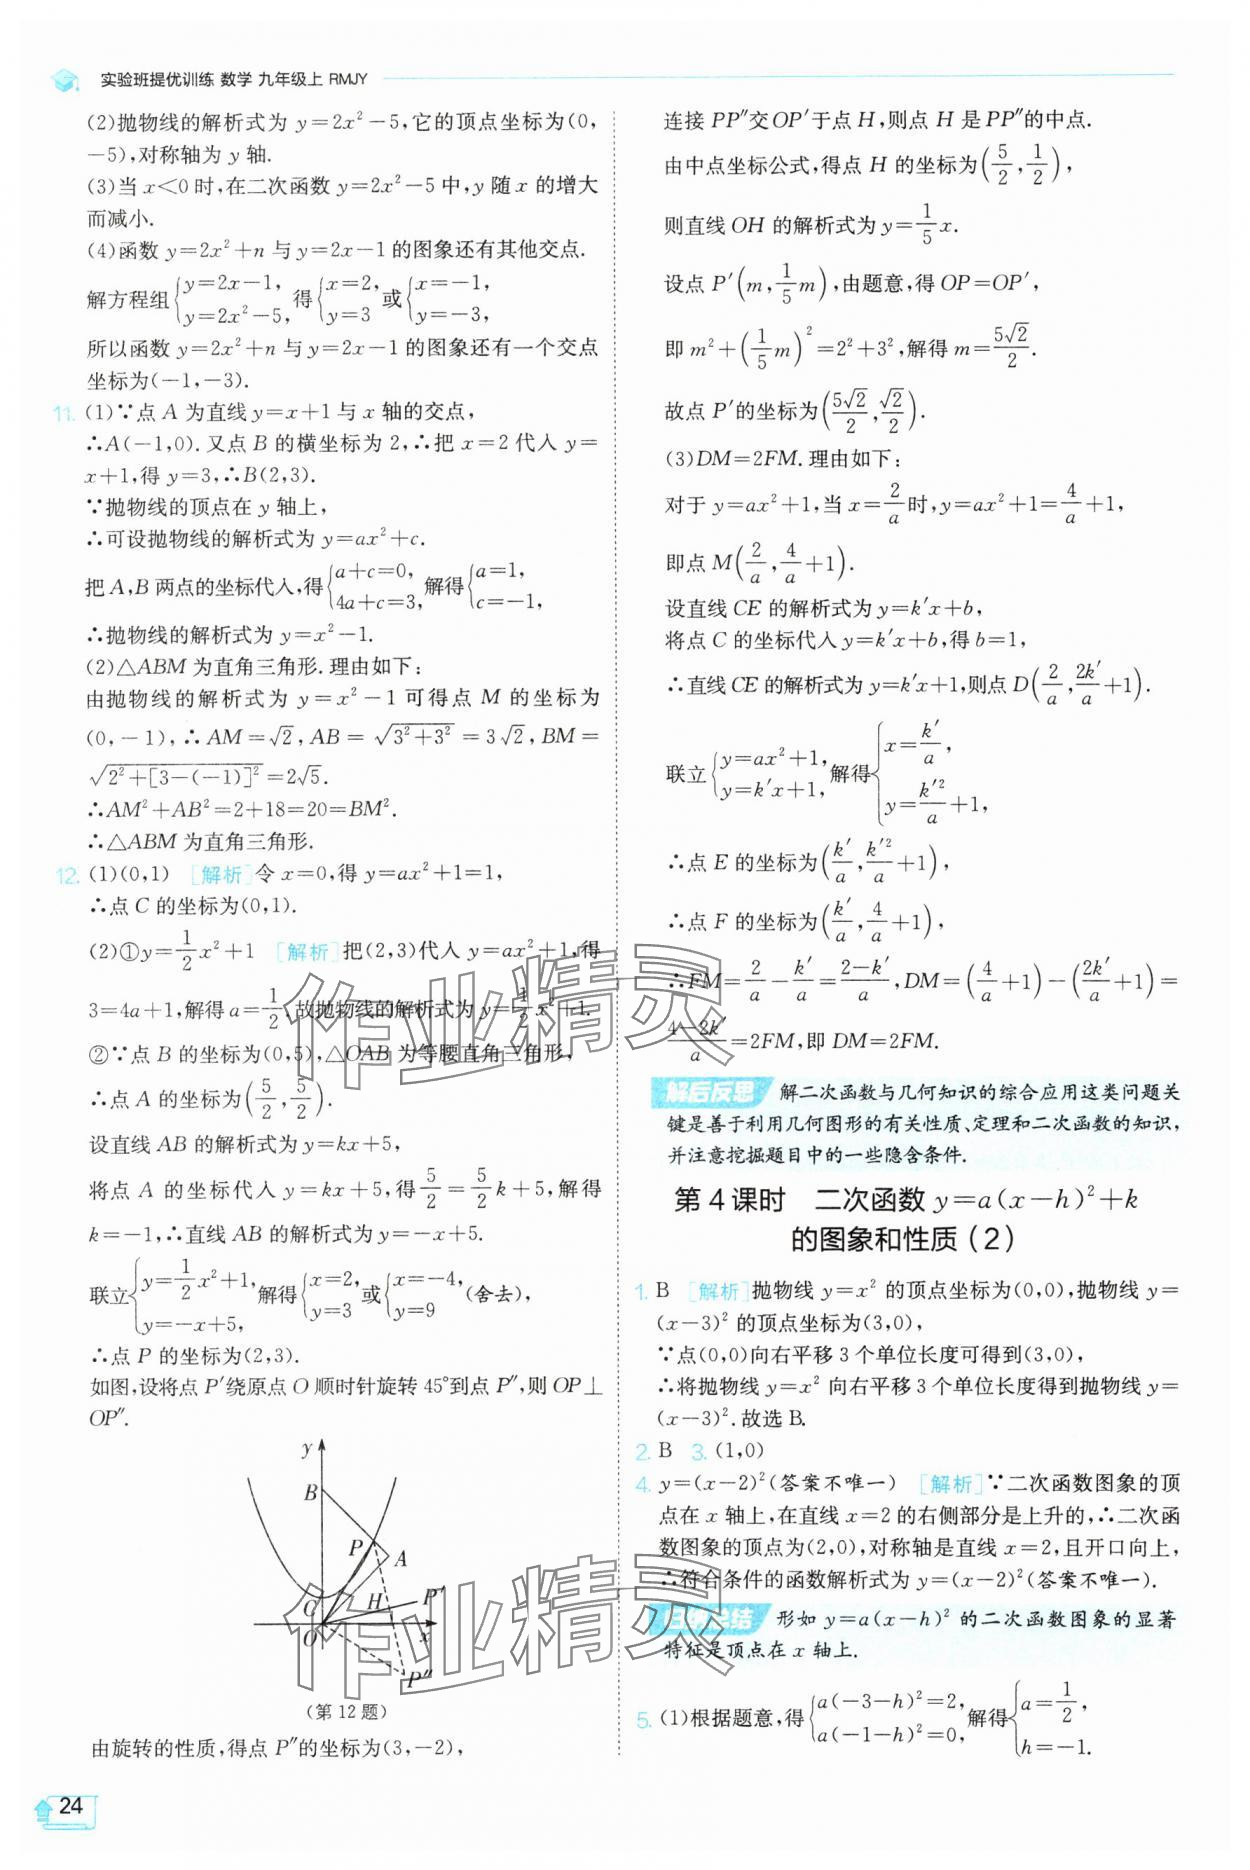 实验班提优训练 数学 九年级上 RMJY
(2)抛物线的解析式为 y=2x²-5,它的顶点坐标为(0,
-5),对称轴为 y 轴.
(3)当 x<0 时,在二次函数 y=2x²-5 中,y 随 x 的增大
而减小.
(4)函数 y=2x²+n 与 y=2x-1 的图象还有其他交点.
解方程组{y=2x-1, y=2x²-5, 得{x=2, y=3 或{x=-1, y=-3,
所以函数 y=2x²+n 与 y=2x-1 的图象还有一个交点
坐标为(-1,-3).
11. (1)∵点 A 为直线 y=x+1 与 x 轴的交点,
∴A(-1,0). 又点 B 的横坐标为 2,∴把 x=2 代入 y=
x+1,得 y=3,∴B(2,3).
∵抛物线的顶点在 y 轴上,
∴可设抛物线的解析式为 y=ax²+c.
把 A,B 两点的坐标代入,得{a+c=0, 4a+c=3, 解得{a=1, c=-1,
∴抛物线的解析式为 y=x²-1.
(2)△ABM 为直角三角形. 理由如下:
由抛物线的解析式为 y=x²-1 可得点 M 的坐标为
(0,-1),∴AM=√2,AB=√(3²+3²)=3√2,BM=
√(2²+[3-(-1)]²)=2√5.
∴AM²+AB²=2+18=20=BM².
∴△ABM 为直角三角形.
12. (1)(0,1) [解析]令 x=0,得 y=ax²+1=1,
∴点 C 的坐标为(0,1).
(2)①y=1/2x²+1 [解析]把(2,3)代入 y=ax²+1,得
3=4a+1,解得 a=1/2.故抛物线的解析式为 y=1/2x²+1.
②∵点 B 的坐标为(0,5),△OAB 为等腰直角三角形,
∴点 A 的坐标为(5/2,5/2).
设直线 AB 的解析式为 y=kx+5,
将点 A 的坐标代入 y=kx+5,得5/2=5/2k+5,解得
k=-1,∴直线 AB 的解析式为 y=-x+5.
联立{y=1/2x²+1, y=-x+5, 解得{x=2, y=3 或{x=-4, y=9 (舍去),
∴点 P 的坐标为(2,3).
如图,设将点 P′绕原点 O 顺时针旋转 45°到点 P″,则 OP⊥
OP″.
y
B
P
A
C
H
P′
O
x
P″
(第 12 题)
由旋转的性质,得点 P″的坐标为(3,-2),
24
连接 PP″交 OP′于点 H,则点 H 是 PP″的中点.
由中点坐标公式,得点 H 的坐标为(5/2,1/2),
则直线 OH 的解析式为 y=1/5x.
设点 P′(m,1/5m),由题意,得 OP=OP′,
即 m²+(1/5m)²=2²+3²,解得 m=5√2/2.
故点 P′的坐标为(5√2/2,√2/2).
(3)DM=2FM. 理由如下:
对于 y=ax²+1,当 x=2/a时,y=ax²+1=4/a+1,
即点 M(2/a,4/a+1).
设直线 CE 的解析式为 y=k′x+b,
将点 C 的坐标代入 y=k′x+b,得 b=1,
∴直线 CE 的解析式为 y=k′x+1,则点 D(2/a,2k′/a+1).
联立{y=ax²+1, y=k′x+1, 解得{x=k′/a, y=k′²/a+1,
∴点 E 的坐标为(k′/a,k′²/a+1),
∴点 F 的坐标为(k′/a,4/a+1),
∴FM=2/a-k′/a=(2-k′)/a,DM=(4/a+1)-(2k′/a+1)=
(4-2k′)/a=2FM,即 DM=2FM.
解后反思 解二次函数与几何知识的综合应用这类问题关
键是善于利用几何图形的有关性质、定理和二次函数的知识,
并注意挖掘题目中的一些隐含条件.
第 4 课时 二次函数 y=a(x-h)²+k
的图象和性质(2)
1. B [解析]抛物线 y=x² 的顶点坐标为(0,0),抛物线 y=
(x-3)² 的顶点坐标为(3,0),
∵点(0,0)向右平移 3 个单位长度可得到(3,0),
∴将抛物线 y=x² 向右平移 3 个单位长度得到抛物线 y=
(x-3)². 故选 B.
2. B 3. (1,0)
4. y=(x-2)²(答案不唯一) [解析]∵二次函数图象的顶
点在 x 轴上,在直线 x=2 的右侧部分是上升的,∴二次函
数图象的顶点为(2,0),对称轴是直线 x=2,且开口向上,
∴符合条件的函数解析式为 y=(x-2)²(答案不唯一).
归纳总结 形如 y=a(x-h)² 的二次函数图象的显著
特征是顶点在 x 轴上.
5. (1)根据题意,得{a(-3-h)²=2, a(-1-h)²=0, 解得{a=1/2, h=-1.
作业精灵
作业精灵